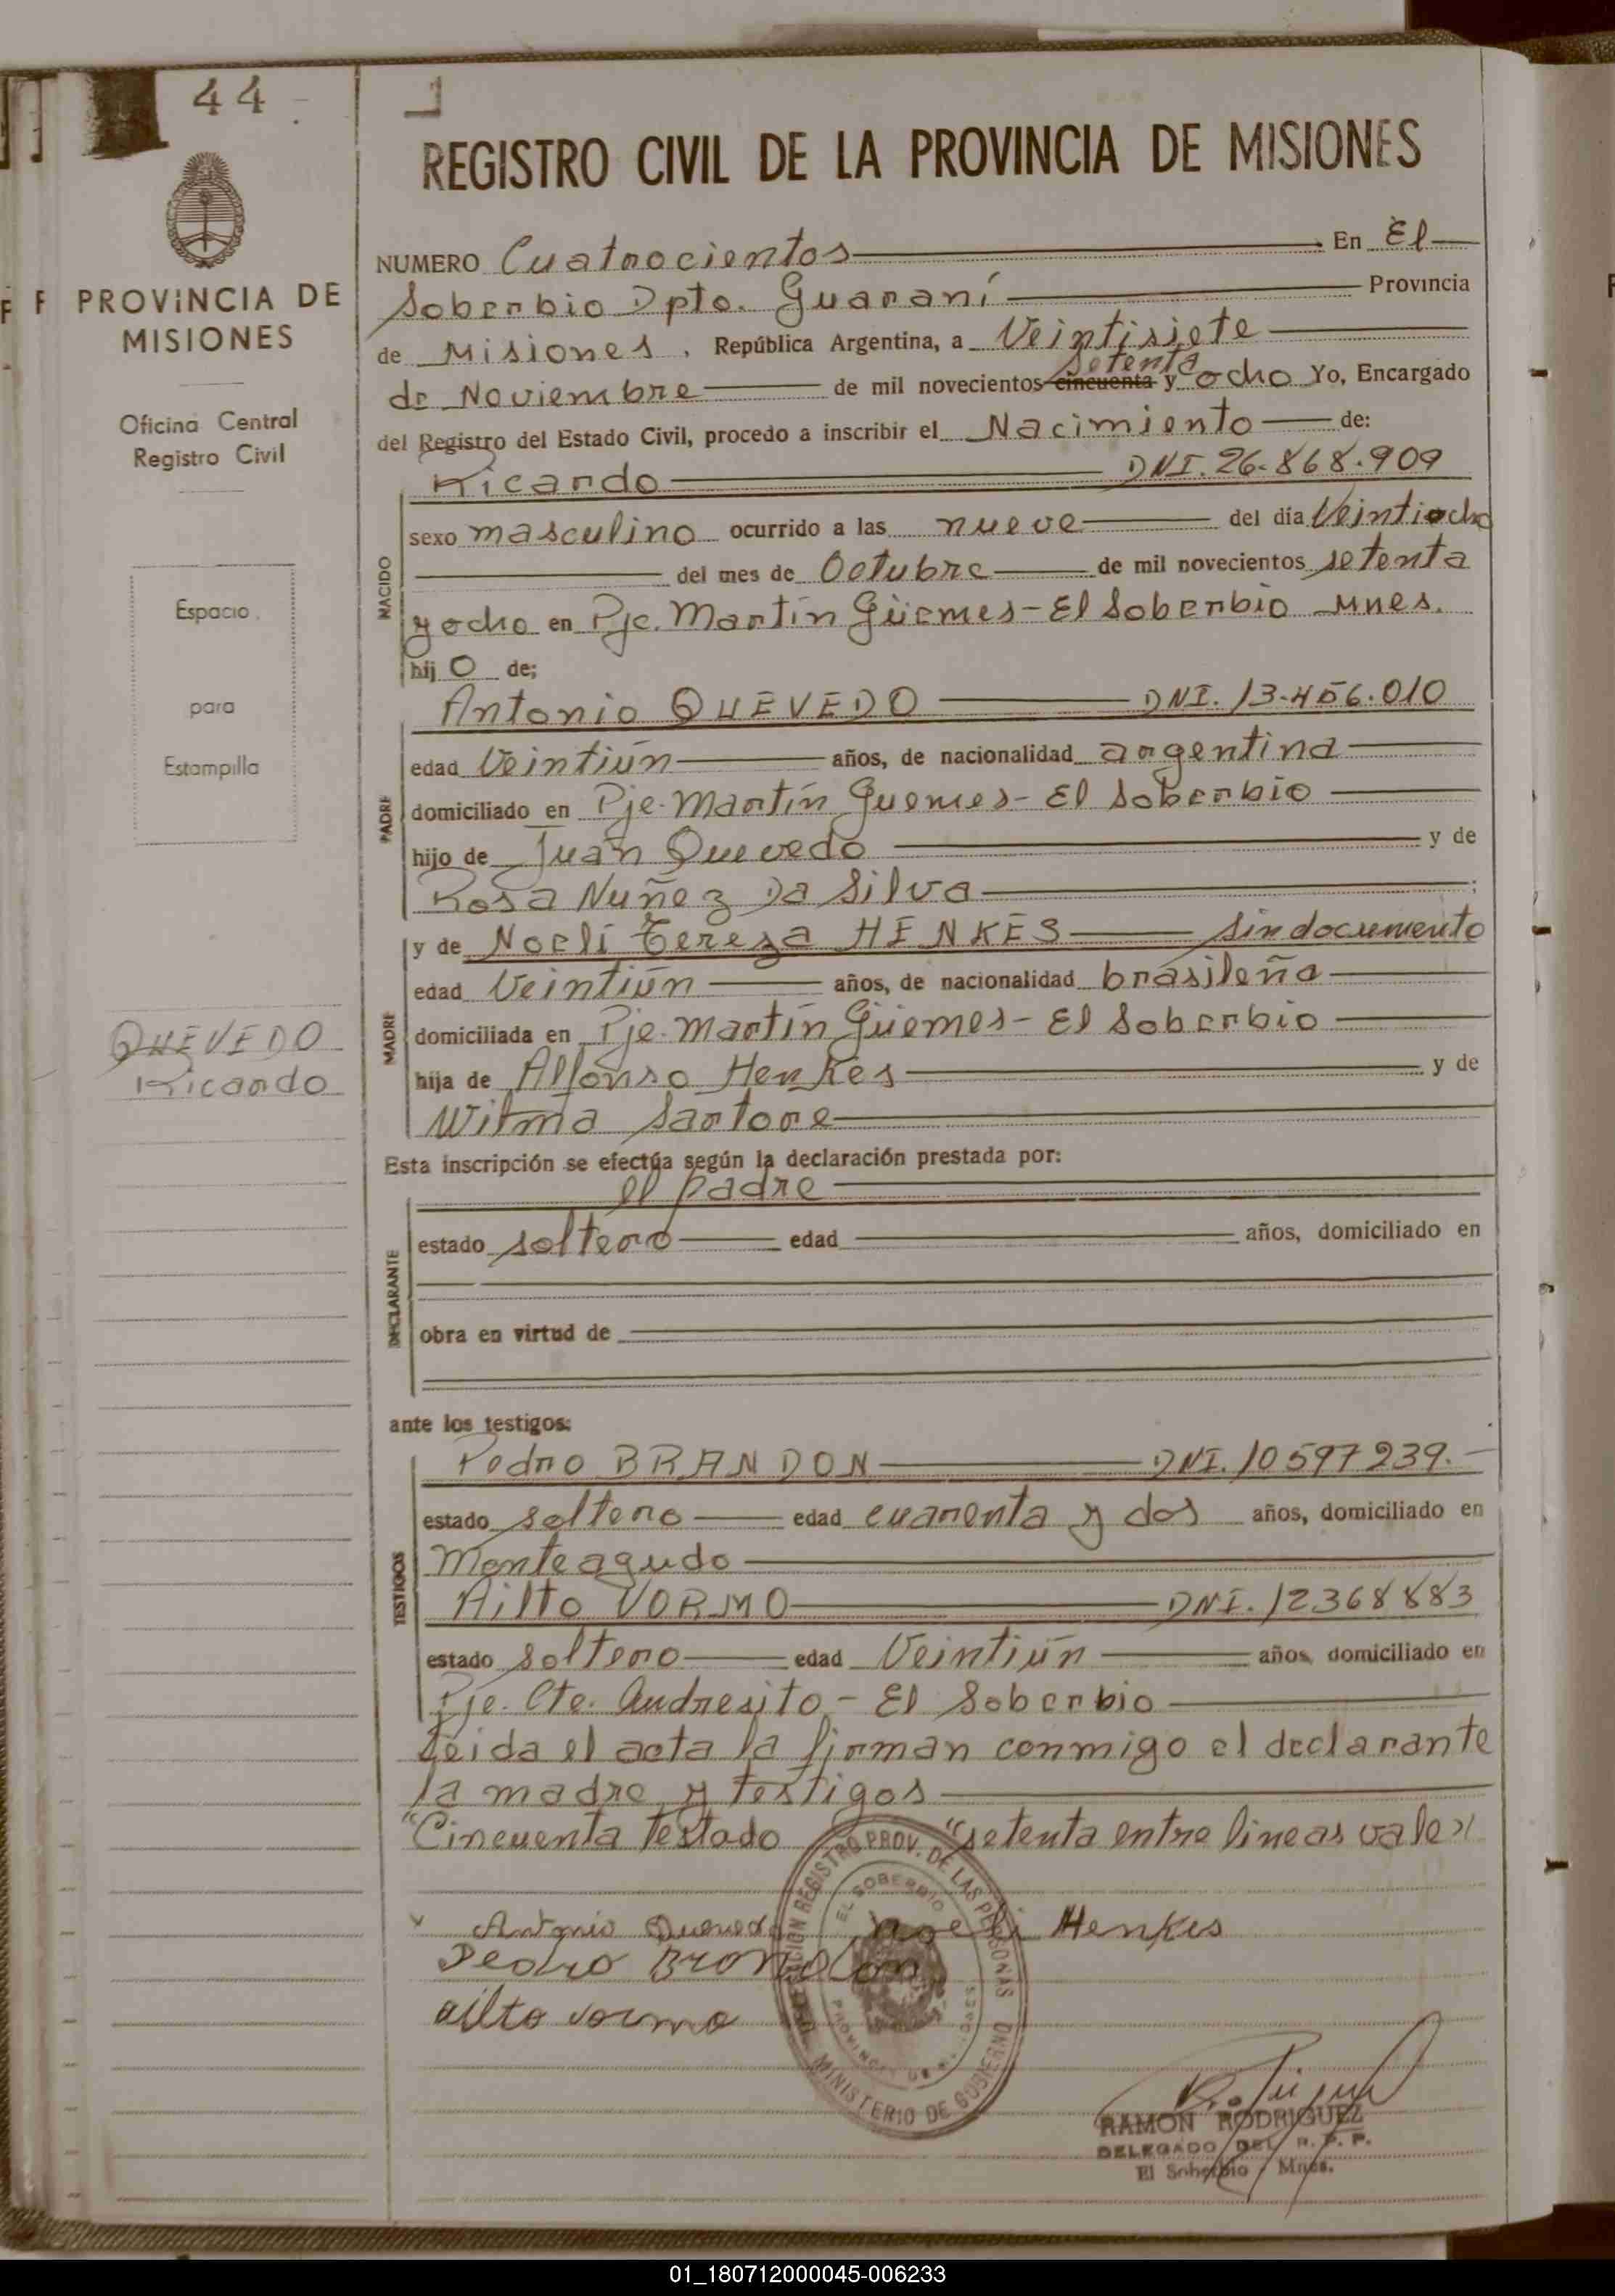 44
REGISTRO CIVIL DE LA PROVINCIA DE MISIONES
PROVINCIA DE
MISIONES
Oficina Central
Registro Civil
Espacio
para
Estampilla
QUEVEDO
Ricardo
NUMERO Cuatrocientos En El
Soberbio Dpto. Guaraní Provincia
de Misiones, República Argentina, a Veintisiete
setenta
de Noviembre de mil novecientos cincuenta y ocho Yo, Encargado
del Registro del Estado Civil, procedo a inscribir el Nacimiento de:
Ricardo DNI. 26.868.909
NACIDO
sexo masculino ocurrido a las nueve del día Veintiocho
del mes de Octubre de mil novecientos setenta
y ocho en Pje. Martín Güemes - El Soberbio Mnes.
hij o de;
Antonio QUEVEDO DNI. 13.456.010
PADRE
edad Veintiún años, de nacionalidad argentina
domiciliado en Pje. Martín Guemes - El Soberbio
hijo de Juan Quevedo y de
Rosa Nuñez Da Silva ;
y de Noeli Tereza HENKES sin documento
MADRE
edad Veintiún años, de nacionalidad brasileña
domiciliada en Pje. Martín Güemes - El Soberbio
hija de Alfonso Henkes y de
Wilma Sartore
Esta inscripción se efectúa según la declaración prestada por:
el padre
DECLARANTE
estado soltero edad años, domiciliado en
obra en virtud de
ante los testigos:
Pedro BRANDON DNI. 10597239.-
TESTIGOS
estado soltero edad cuarenta y dos años, domiciliado en
Monteagudo
Ailto VORMO DNI. 12368883
estado soltero edad Veintiún años, domiciliado en
Pje. Cte. Andresito - El Soberbio
Leida el acta la firman conmigo el declarante
la madre y testigos
"Cincuenta testado "setenta entre lineas vale"
Antonio Quevedo noeli Henkes
Pedro Brondon
ailto vormo
REGISTRO PROV. DE LAS PERSONAS
EL SOBERBIO
MINISTERIO DE GOBIERNO
RAMON RODRIGUEZ
DELEGADO DEL R. P. P.
El Soberbio / Mnes.
01_180712000045-006233